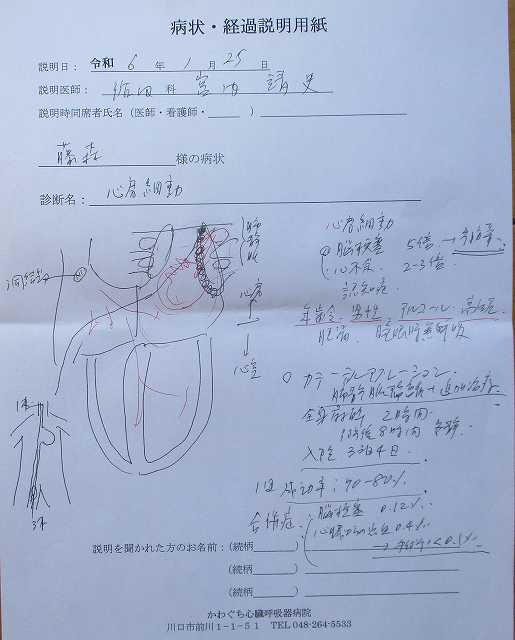 病状・経過説明用紙
説明日： 令和 6 年 1 月 25 日
説明医師： 循内 科 宮内 靖史
説明時同席者氏名（医師・看護師・　　）
藤森 様の病状
診断名： 心房細動
肺静脈
洞結節
心房
↓
心室
1本
3本
心房細動
脳梗塞 5倍 →予防薬
心不全 2-3倍
認知症
年齢、男性、アルコール、高血圧
肥満、睡眠時無呼吸
○ カテーテルアブレーション
肺静脈隔離 + 追加治療
全身麻酔 2時間
術後8時間 安静
入院 3泊4日
1回 成功率：70-80%
合併症： 脳梗塞 0.12%
心臓からの出血 0.4%
→ <0.1%
説明を聞かれた方のお名前：（続柄　　）
（続柄　　）
（続柄　　）
かわぐち心臓呼吸器病院
川口市前川１－１－５１ TEL 048-264-5533